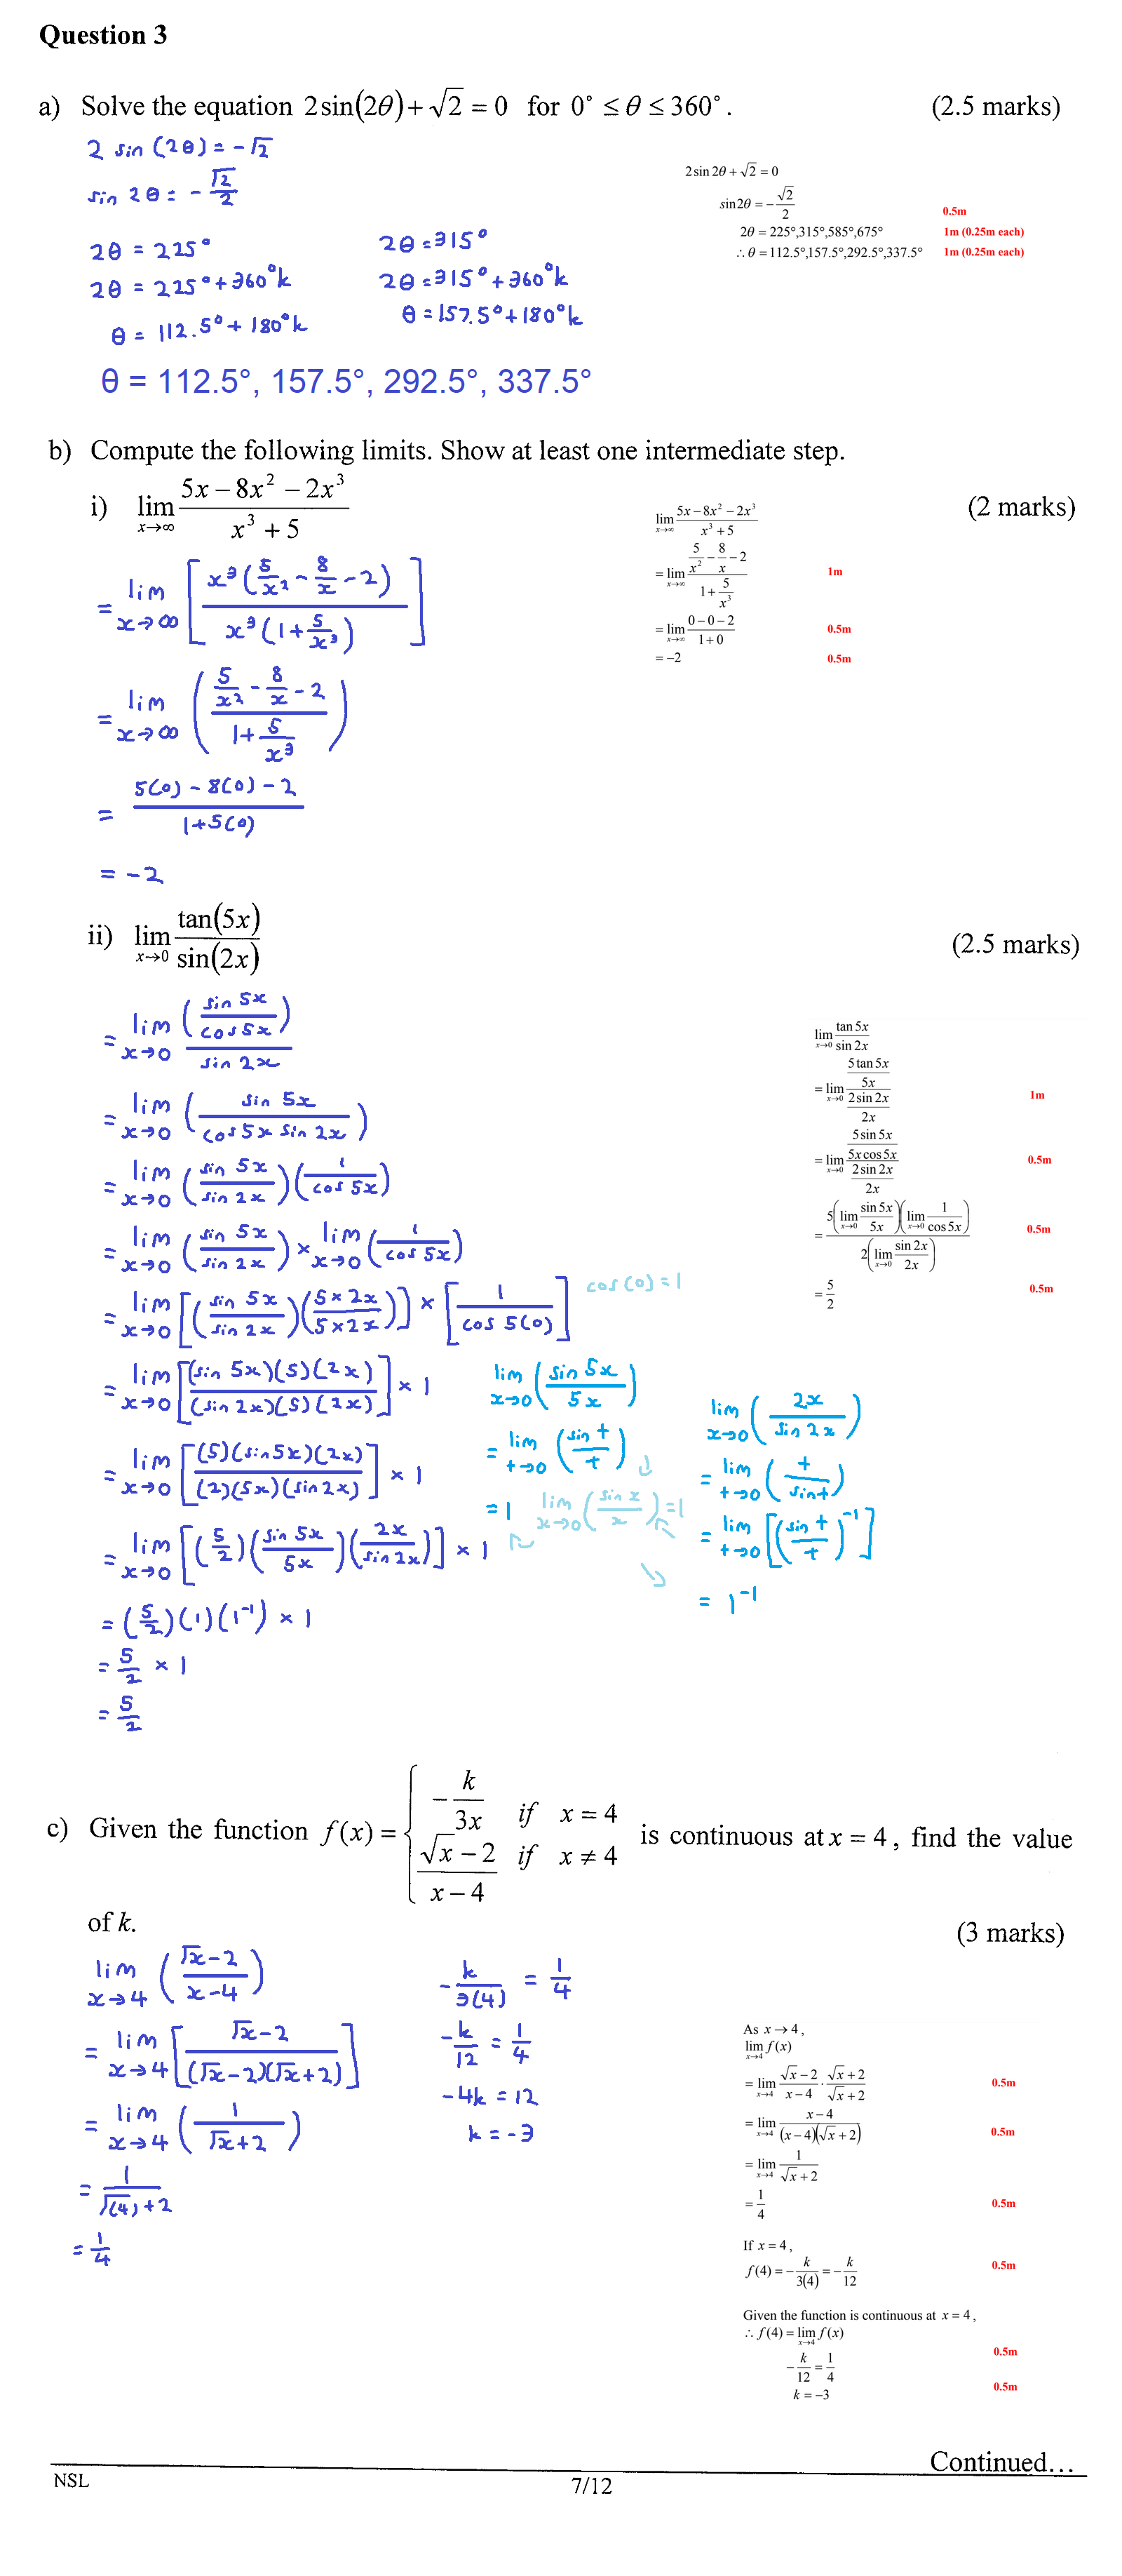 Question 3
a) Solve the equation 2sin(2θ)+√2 = 0 for 0° ≤ θ ≤ 360°. (2.5 marks)
2 sin (2θ) = -√2
sin 2θ = - √2/2
2θ = 225°
2θ = 225° + 360°k
θ = 112.5° + 180°k
2θ = 315°
2θ = 315° + 360°k
θ = 157.5° + 180°k
θ = 112.5°, 157.5°, 292.5°, 337.5°
2sin2θ + √2 = 0
sin2θ = -√2/2 0.5m
2θ = 225°,315°,585°,675° 1m (0.25m each)
∴θ = 112.5°,157.5°,292.5°,337.5° 1m (0.25m each)
b) Compute the following limits. Show at least one intermediate step.
i) lim x→∞ (5x – 8x² – 2x³)/(x³ + 5) (2 marks)
= lim x→∞ [x³(5/x² - 8/x - 2)/x³(1 + 5/x³)]
= lim x→∞ ((5/x² - 8/x - 2)/(1 + 5/x³))
= (5(0) - 8(0) - 2)/(1+5(0))
= -2
lim x→∞ (5x – 8x² – 2x³)/(x³ + 5)
= lim x→∞ (5/x² - 8/x - 2)/(1 + 5/x³) 1m
= lim x→∞ (0-0-2)/(1+0) 0.5m
= -2 0.5m
ii) lim x→0 tan(5x)/sin(2x) (2.5 marks)
= lim x→0 (sin 5x/cos 5x)/sin 2x
= lim x→0 (sin 5x/(cos 5x sin 2x))
= lim x→0 (sin 5x/sin 2x)(1/cos 5x)
= lim x→0 (sin 5x/sin 2x) × lim x→0 (1/cos 5x)
= lim x→0 [(sin 5x/sin 2x)(5×2x/5×2x)] × [1/cos 5(0)] cos(0)=1
= lim x→0 [(sin 5x)(5)(2x)/(sin 2x)(5)(2x)] × 1
= lim x→0 [(5)(sin 5x)(2x)/(2)(5x)(sin 2x)] × 1
= lim x→0 [(5/2)(sin 5x/5x)(2x/sin 2x)] × 1
= (5/2)(1)(1⁻¹) × 1
= 5/2 × 1
= 5/2
lim x→0 (sin 5x/5x)
= lim t→0 (sin t/t)
= 1
lim x→0 (sin x/x) = 1
lim x→0 (2x/sin 2x)
= lim t→0 (t/sin t)
= lim t→0 [(sin t/t)⁻¹]
= 1⁻¹
lim x→0 tan 5x/sin 2x
= lim x→0 (5 tan 5x/5x)/(2 sin 2x/2x) 1m
= lim x→0 (5 sin 5x/5x cos 5x)/(2 sin 2x/2x) 0.5m
= 5(lim x→0 sin 5x/5x)(lim x→0 1/cos 5x)/2(lim x→0 sin 2x/2x) 0.5m
= 5/2 0.5m
c) Given the function f(x) = { -k/3x if x = 4
(√x – 2)/(x – 4) if x ≠ 4 is continuous at x = 4, find the value
of k. (3 marks)
lim x→4 ((√x-2)/(x-4))
= lim x→4 [(√x-2)/((√x-2)(√x+2))]
= lim x→4 (1/(√x+2))
= 1/(√(4)+2)
= 1/4
-k/3(4) = 1/4
-k/12 = 1/4
-4k = 12
k = -3
As x → 4,
lim x→4 f(x)
= lim x→4 (√x – 2)/(x – 4) · (√x + 2)/(√x + 2) 0.5m
= lim x→4 (x – 4)/((x – 4)(√x + 2)) 0.5m
= lim x→4 1/(√x + 2)
= 1/4 0.5m
If x = 4,
f(4) = -k/3(4) = -k/12 0.5m
Given the function is continuous at x = 4,
∴ f(4) = lim x→4 f(x) 0.5m
-k/12 = 1/4
k = -3 0.5m
Continued...
NSL 7/12